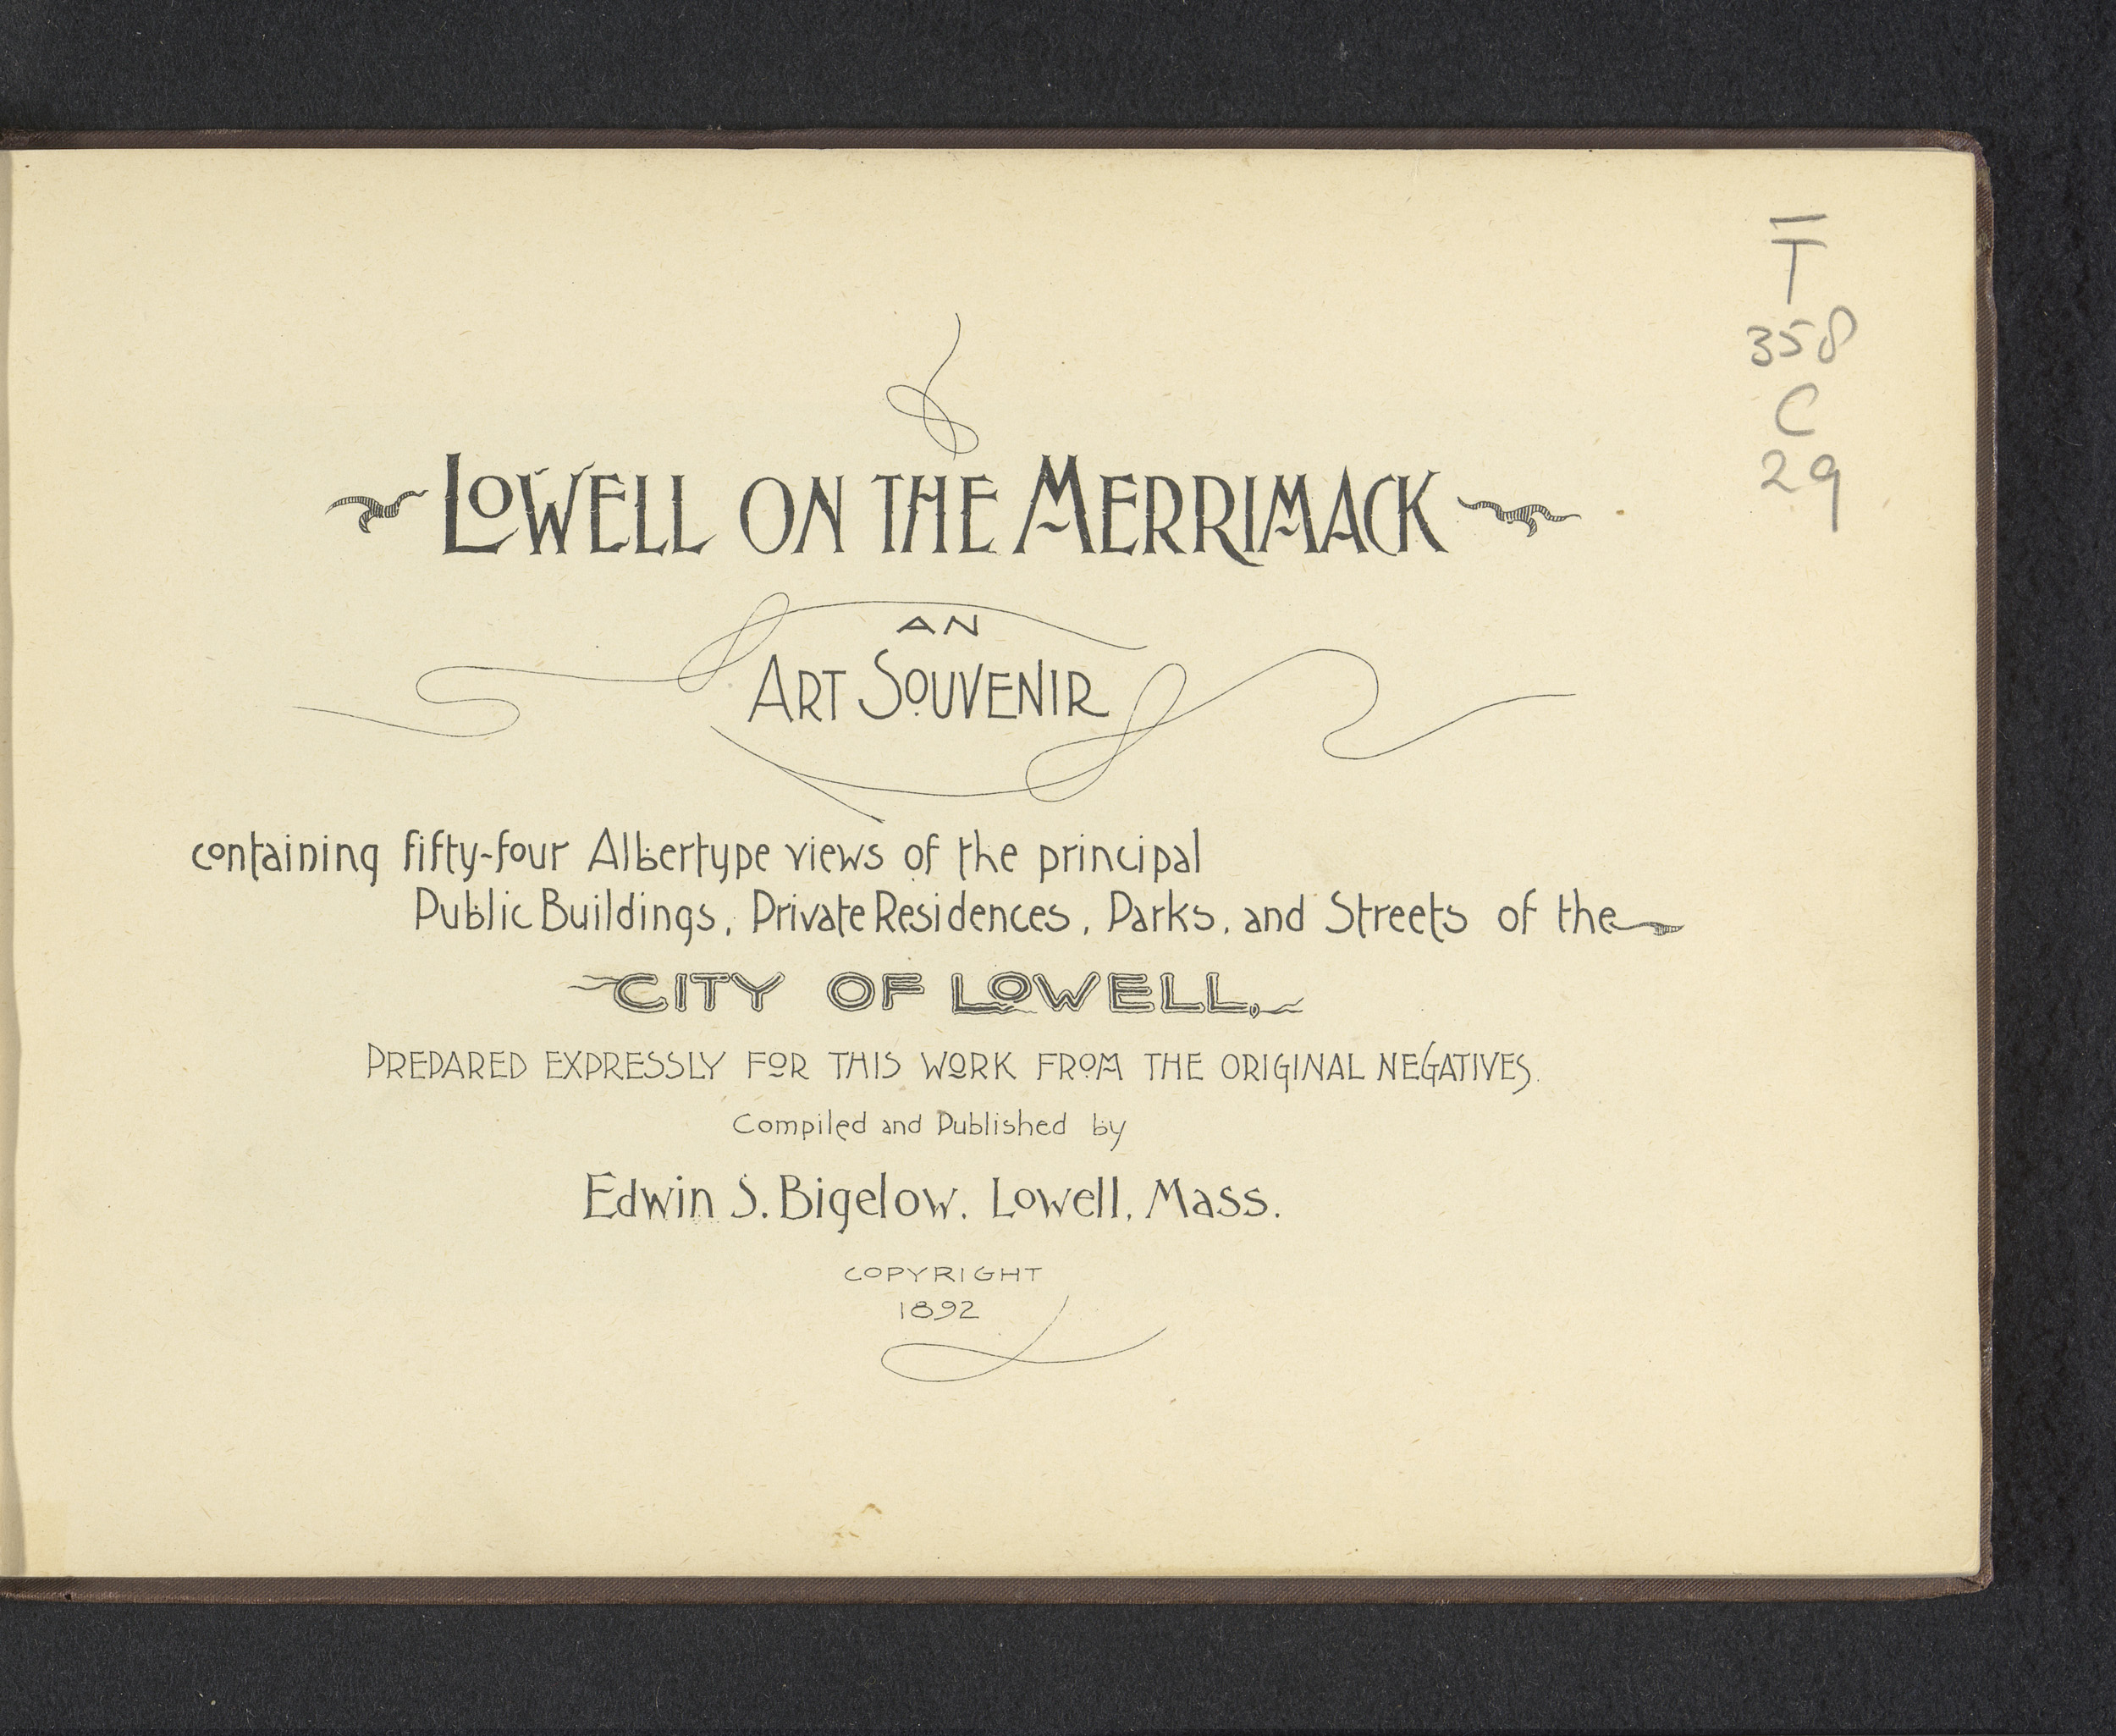 T
358
C
29
LOWELL ON THE MERRIMACK
AN
ART SOUVENIR
containing fifty-four Albertype views of the principal
Public Buildings, Private Residences, Parks, and Streets of the
CITY OF LOWELL,
PREPARED EXPRESSLY FOR THIS WORK FROM THE ORIGINAL NEGATIVES.
Compiled and Published by
Edwin S. Bigelow. Lowell, Mass.
COPYRIGHT
1892